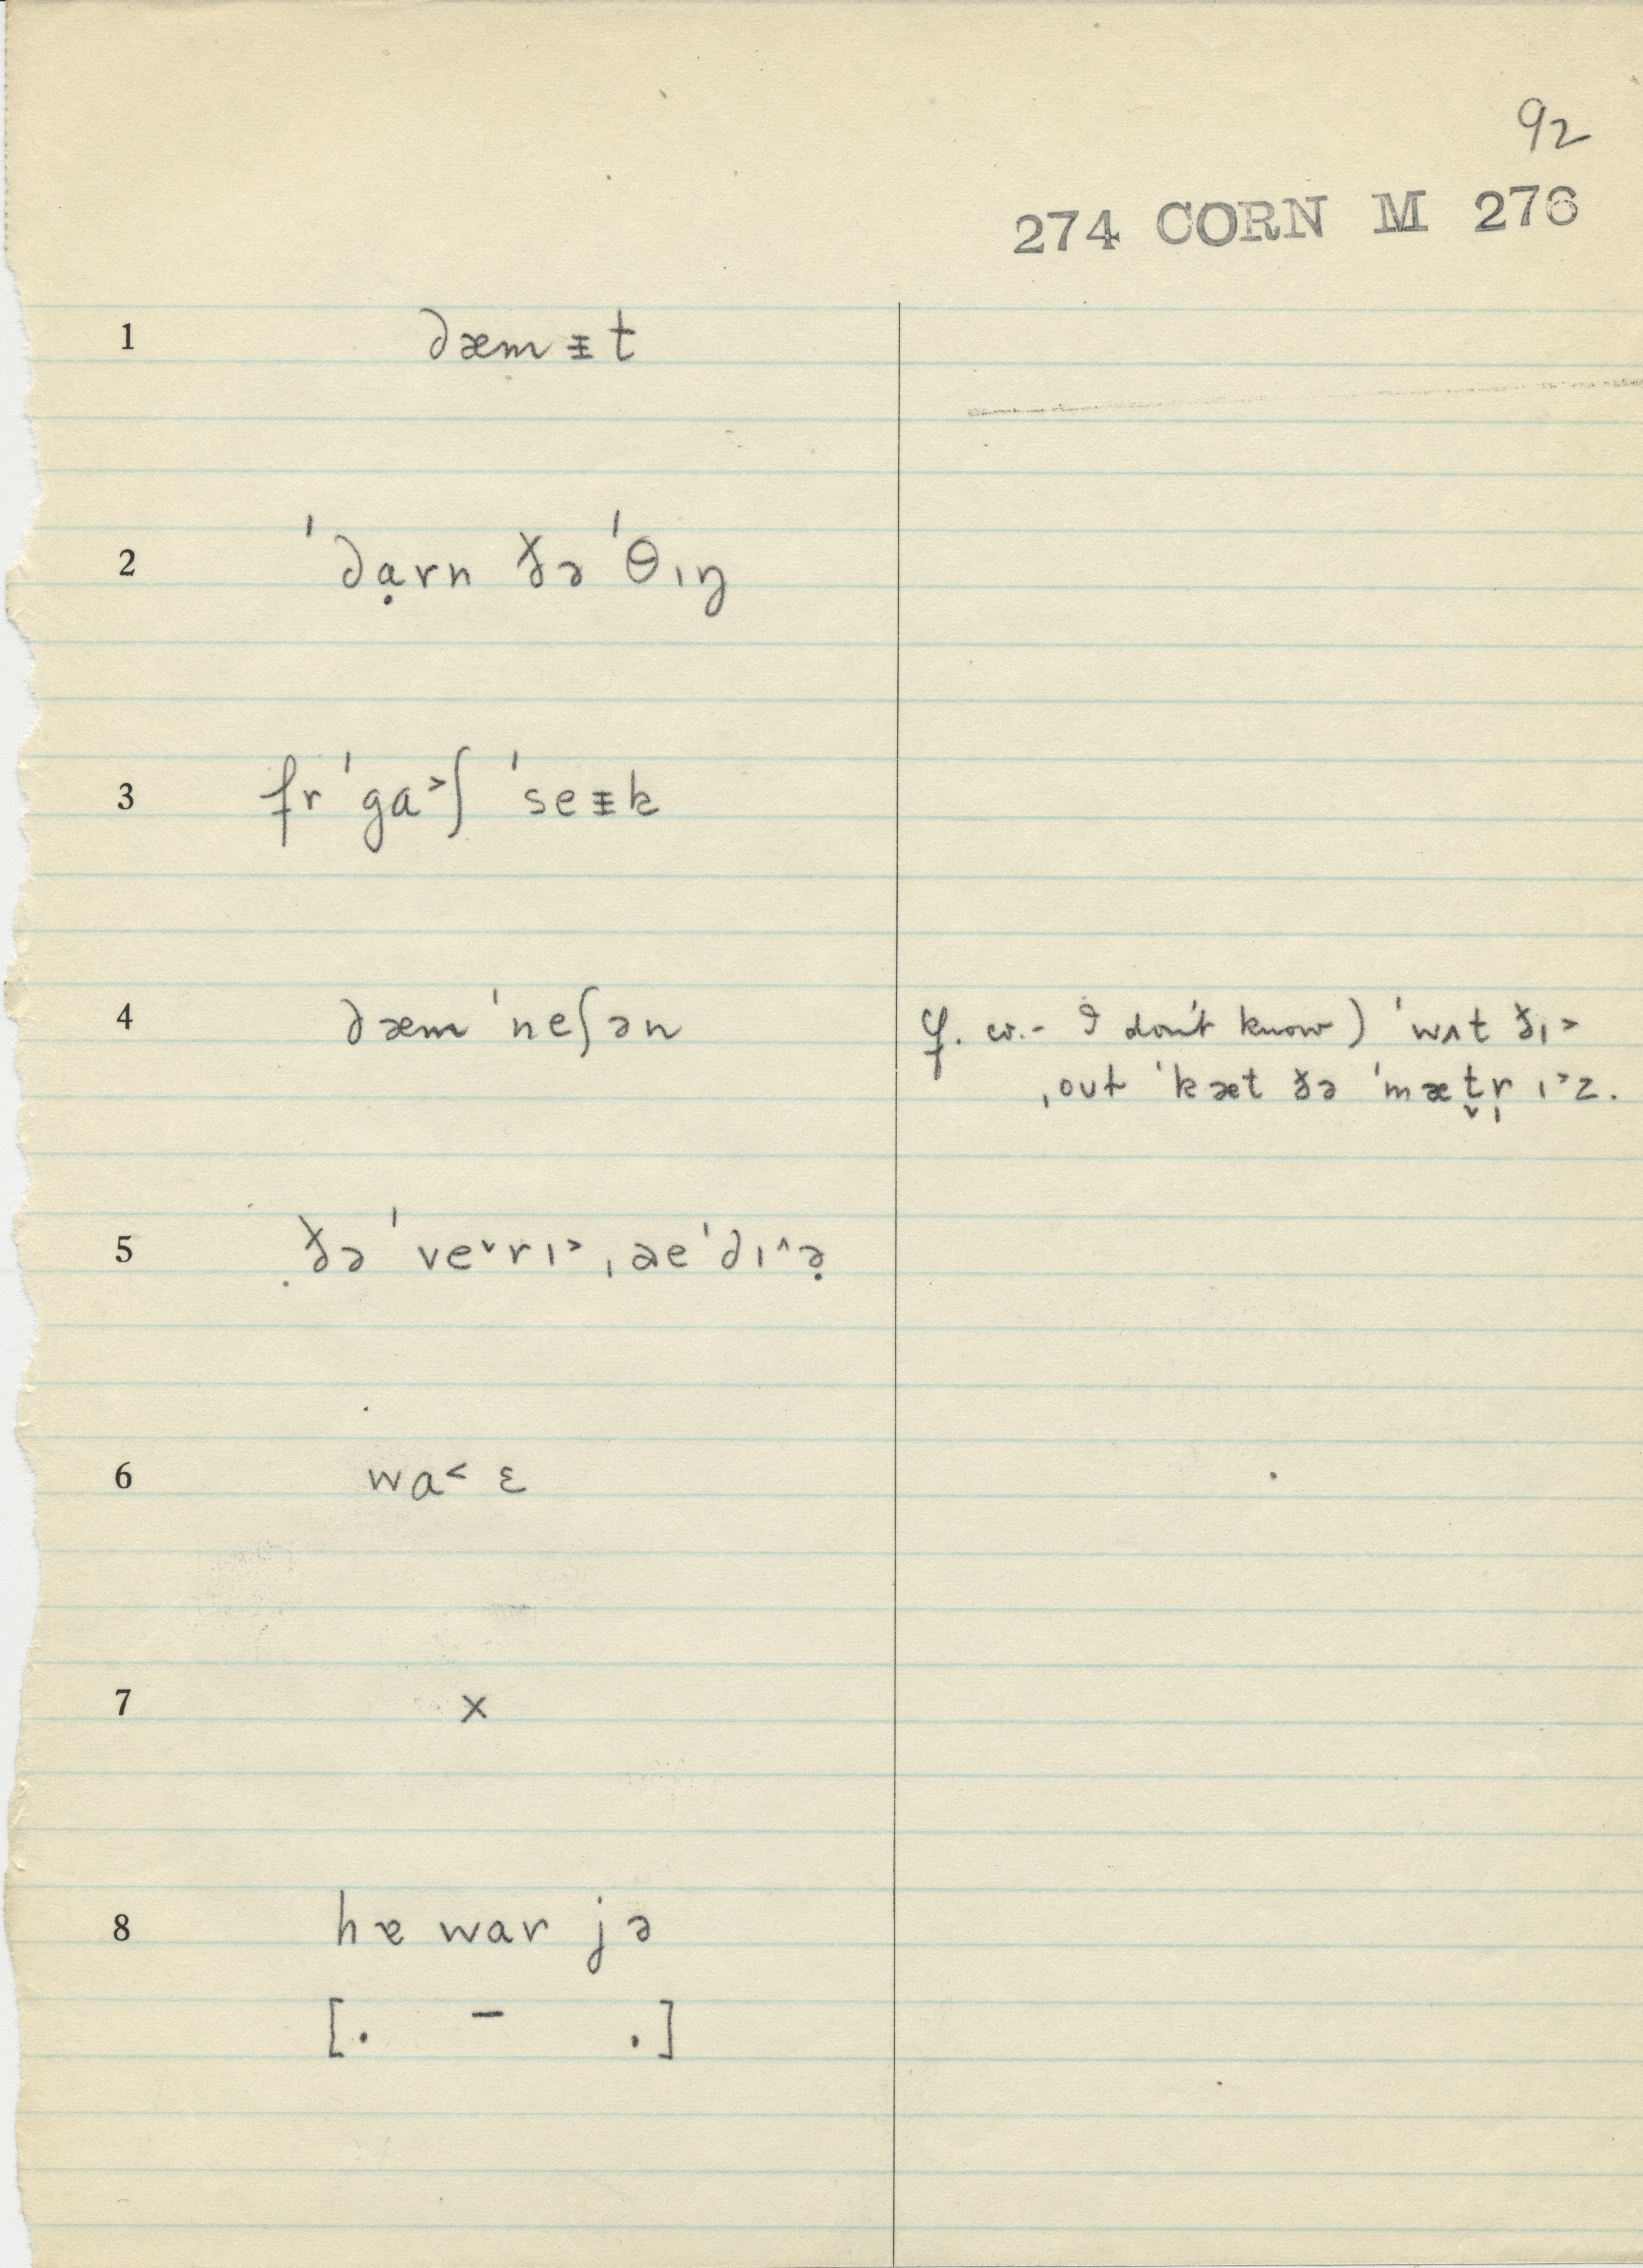 92
274 CORN M 276
1 dæmᵻt
2 ˈdạrn ðə ˈθɪŋ
3 fr ˈga˃ʃ ˈseᵻk
4 dæm ˈneʃən
cf. cw.- I don't know) ˈwʌt ðɪ˃
ˌout ˈkæt ðə ˈmæt̬r̩ ɪ˃z.
5 ðə ˈve˅rɪ˃ ˌaeˈdɪ˄ə̣
6 wa˂ ɛ
7 x
8 hɐ war jə
[. – .]